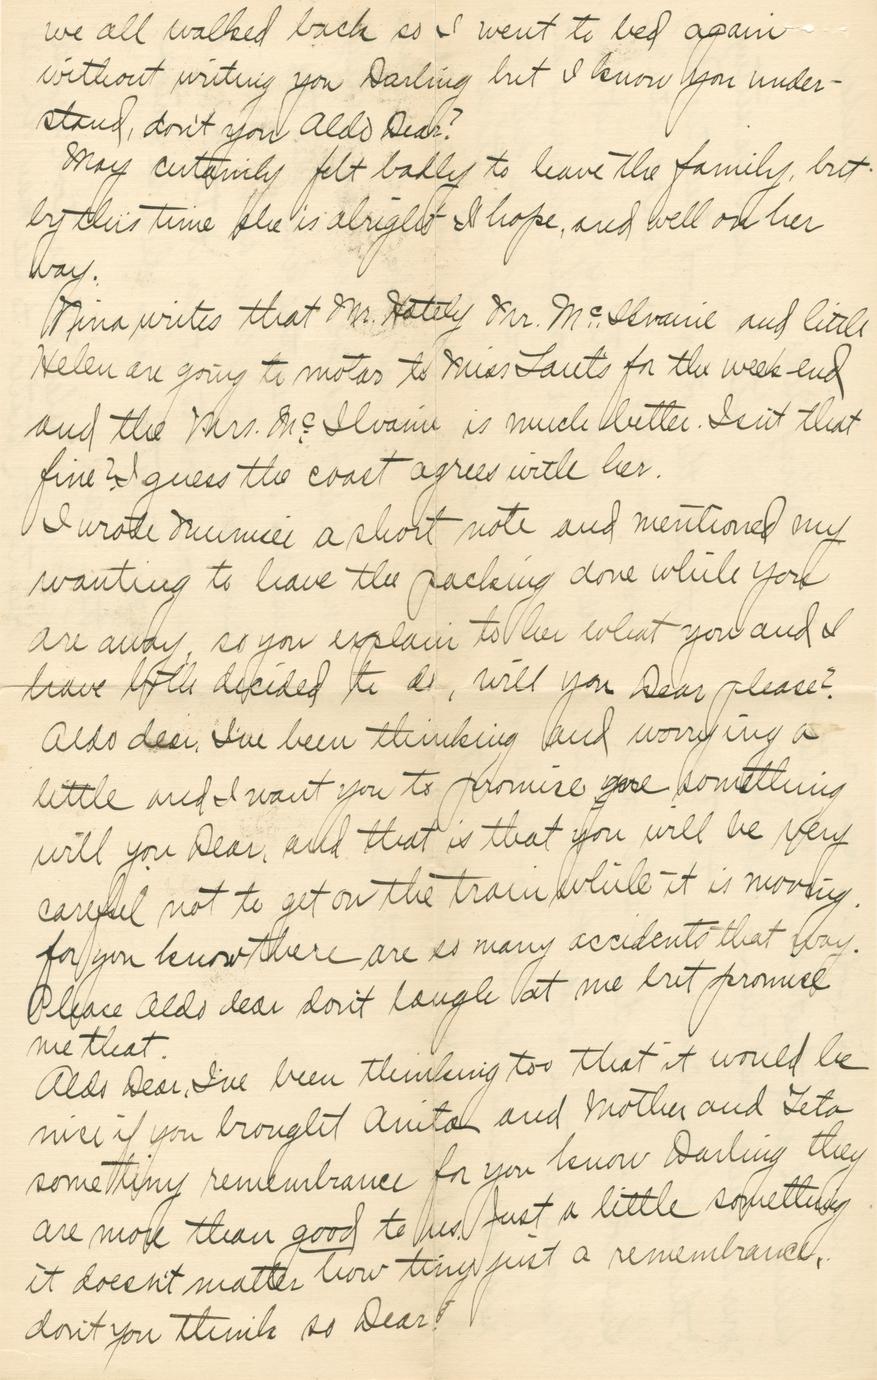 we all walked back so I went to bed again
without writing you Darling but I know you under-
stand, don't you Aldo Dear?
May certainly felt badly to leave the family, but
by this time she is alright I hope, and well on her
way.
Nina writes that Mr. Hately Mr. McIlvaine and little
Helen are going to motar to Miss Lant's for the week-end
and the Mrs. McIlvaine is much better. Isn't that
fine? I guess the coast agrees with her.
I wrote Mumsie a short note and mentioned my
wanting to have the packing done while you
are away, so you explain to her what you and I
have both decided to do, will you Dear please?
Aldo dear, I've been thinking and worrying a
little and I want you to promise me something
will you Dear, and that is that you will be very
careful not to get on the train while it is moving.
for you know there are so many accidents that way.
Please Aldo dear don't laugh at me but promise
me that.
Aldo Dear, I've been thinking too that it would be
nice if you brought Anita and Mother and Teta
some tiny remembrance for you know Darling they
are more than good to us. Just a little something
it doesn't matter how tiny just a remembrance,
don't you think so Dear?